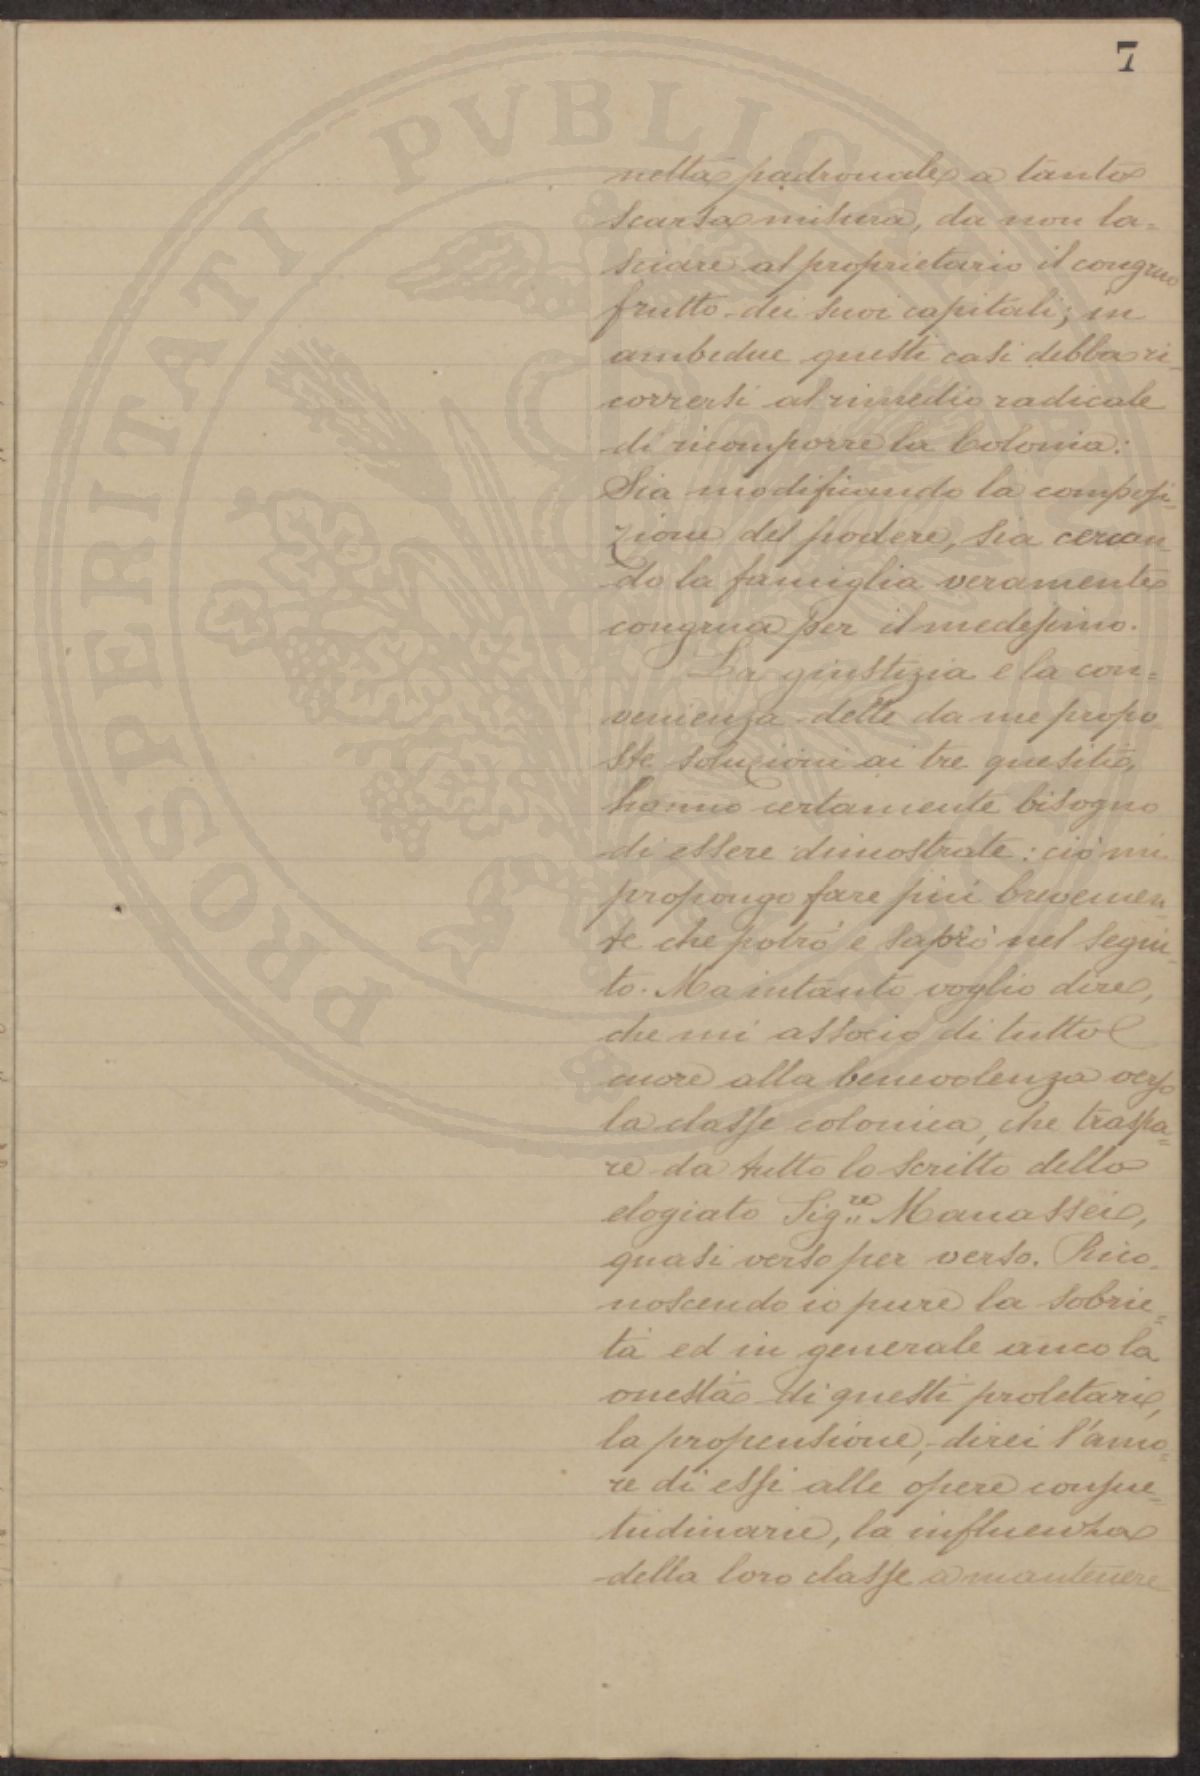 7
netta padronale a tanto
scarsa misura, da non la=
sciare al proprietario il congruo
frutto dei suoi capitali; in
ambedue questi casi debba ri-
corrersi al rimedio radicale
di ricomporre la Colonia:
Sia modificando la composi=
zione del podere, sia cercan=
do la famiglia veramente
congrua per il medesimo.
La giustizia e la con=
venienza delle da me propo
ste soluzioni ai tre quesiti,
hanno certamente bisogno
di essere dimostrate: ciò mi
propongo fare più brevemen=
te che potrò e saprò nel segui=
to. Ma intanto voglio dire,
che mi associo di tutto
cuore alla benevolenza verso
la classe colonica, che traspa=
re da tutto lo scritto dello
elogiato Sig.re Manassei,
quasi verso per verso. Rico=
noscendo io pure la sobrie=
tà ed in generale anco la
onestà di questi proletari,
la propensione, direi l'amo=
re di essi alle opere consue=
tudinarie, la influenza
della loro classe a mantenere
PROSPERITATI PVBLICAE